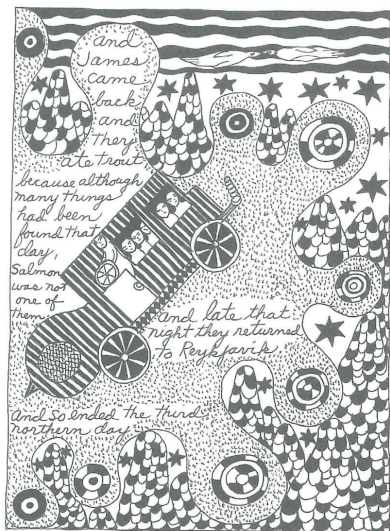 and
James
came
back
and
they
ate trout
because although
many things
had been
found that
day,
Salmon
was not
one of
them
and late that
night they returned
to Reykjavik.
And so ended the third
northern day.